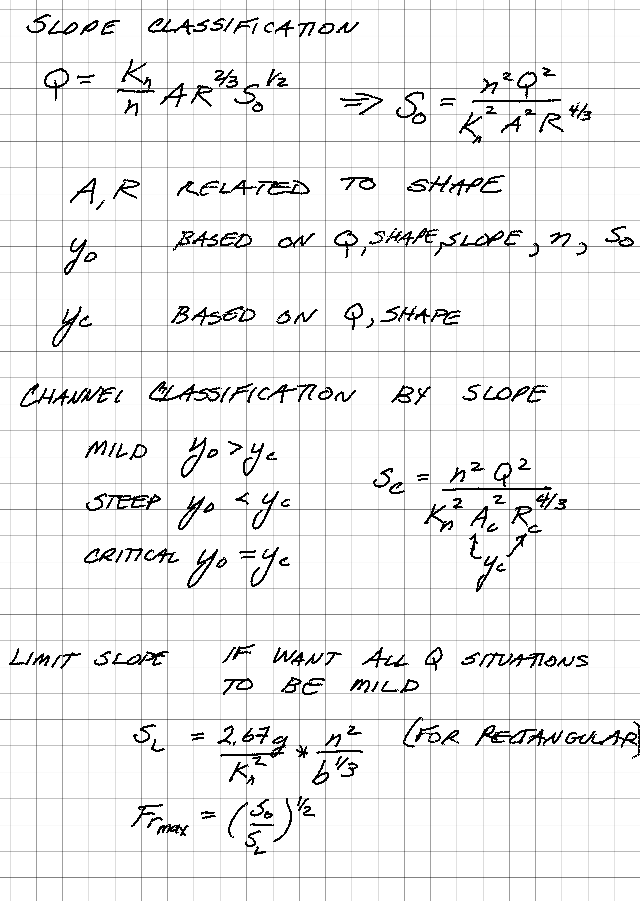 SLOPE CLASSIFICATION
Q = Kn/n A R^2/3 S₀^1/2 ⇒ S₀ = n² Q² / Kn² A² R^4/3
A, R RELATED TO SHAPE
y₀ BASED ON Q, SHAPE, SLOPE, n, S₀
yc BASED ON Q, SHAPE
CHANNEL CLASSIFICATION BY SLOPE
MILD y₀ > yc
STEEP y₀ < yc
CRITICAL y₀ = yc
Sc = n² Q² / Kn² Ac² Rc^4/3
yc
LIMIT SLOPE IF WANT ALL Q SITUATIONS
TO BE MILD
SL = 2.67g / Kn² * n² / b^1/3 (FOR RECTANGULAR)
Frmax = (S₀/SL)^1/2